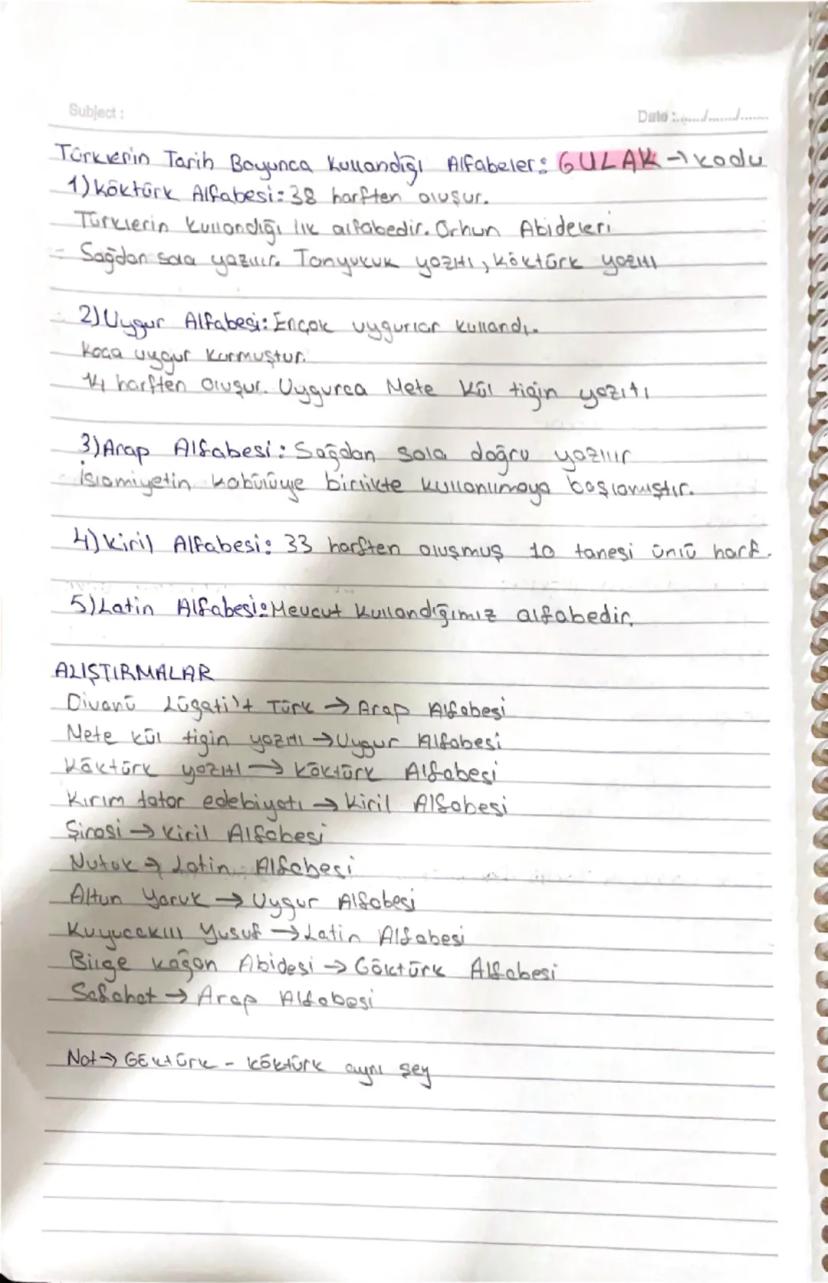 Subject :
Date :....../....../......
Türklerin Tarih Boyunca Kullandığı Alfabeler: GULAK → kodu
1) Köktürk Alfabesi: 38 harften oluşur.
Türklerin kullandığı ilk alfabedir. Orhun Abideleri
- Sağdan sola yazılır. Tonyukuk yazıtı, Köktürk yazıtı
2) Uygur Alfabesi: Ençok uygurlar kullandı.
Koca uygur kurmuştur.
14 harften oluşur. Uygurca Mete Kül tigin yazıtı
3) Arap Alfabesi: Sağdan sola doğru yazılır
İslamiyetin kabulüyle birlikte kullanılmaya başlamıştır.
4) Kiril Alfabesi: 33 harften oluşmuş 10 tanesi ünlü harf.
5) Latin Alfabesi: Mevcut kullandığımız alfabedir.
ALIŞTIRMALAR
Divanü Lügati't Türk → Arap Alfabesi
Mete kül tigin yazıtı → Uygur Alfabesi
Köktürk yazıtı → Köktürk Alfabesi
Kırım tatar edebiyatı → Kiril Alfabesi
Şirasi → Kiril Alfabesi
Nutuk → Latin Alfabesi
Altun Yaruk → Uygur Alfabesi
Kuyucaklı Yusuf → Latin Alfabesi
Bilge kağan Abidesi → Göktürk Alfabesi
Safahat → Arap Alfabesi
Not → Göktürk - köktürk aynı şey